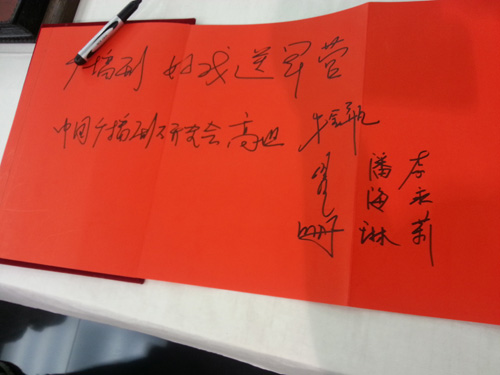 广播剧 好戏送军营
中国广播剧研究会 高
潘海琳
李永莉